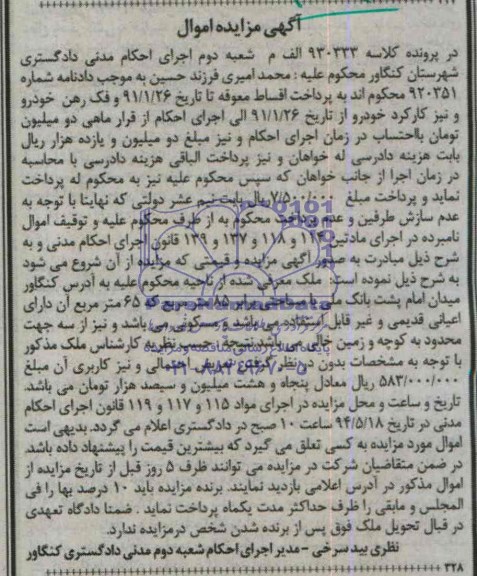 آگهی مزایده اموال
در پرونده کلاسه ۹۳۰۳۳۳ الف م شعبه دوم اجرای احکام مدنی دادگستری
شهرستان کنگاور محکوم علیه : محمد امیری فرزند حسین به موجب دادنامه شماره
۹۲۰۳۵۱ محکوم اند به پرداخت اقساط معوقه تا تاریخ ۹۱/۱/۲۶ و فک رهن خودرو
و نیز کارکرد خودرو از تاریخ ۹۱/۱/۲۶ الی اجرای احکام از قرار ماهی دو میلیون
تومان بااحتساب در زمان اجرای احکام و نیز مبلغ دو میلیون و یازده هزار ریال
بابت هزینه دادرسی له خواهان و نیز پرداخت الباقی هزینه دادرسی با محاسبه
در زمان اجرا از جانب خواهان که سپس محکوم علیه نیز به محکوم له پرداخت
نماید و پرداخت مبلغ ریال بابت نیم عشر دولتی که نهایتا با توجه به
عدم سازش طرفین و عدم پرداخت محکوم به از طرف محکوم علیه و توقیف اموال
نامبرده در اجرای مادتین ۱۱۴ و ۱۱۸ و ۱۳۷ و ۱۳۹ قانون اجرای احکام مدنی و به
شرح ذیل مبادرت به صدور آگهی مزایده و قیمتی که مزایده از آن شروع می شود
به شرح ذیل نموده است: ملک معرفی شده از ناحیه محکوم علیه به آدرس کنگاور
میدان امام پشت بانک ملی با مساحتی برابر ۸۵ متر مربع که ۶۵ متر مربع آن دارای
اعیانی قدیمی و غیر قابل استفاده می باشد و مسکونی می باشد و نیز از سه جهت
محدود به کوچه و زمین خالی می باشد نتیجتا حسب نظریه کارشناس ملک مذکور
با توجه به مشخصات بدون در نظر گرفتن تعریض احتمالی و نیز کاربری آن مبلغ
۵۸۳/۰۰۰/۰۰۰ ریال معادل پنجاه و هشت میلیون و سیصد هزار تومان می باشد.
تاریخ و ساعت و محل مزایده در اجرای مواد ۱۱۵ و ۱۱۷ و ۱۱۹ قانون اجرای احکام
مدنی در تاریخ ۹۴/۵/۱۸ ساعت ۱۰ صبح در دادگستری اعلام می گردد. بدیهی است
اموال مورد مزایده به کسی تعلق می گیرد که بیشترین قیمت را پیشنهاد داده باشد.
در ضمن متقاضیان شرکت در مزایده می توانند ظرف ۵ روز قبل از تاریخ مزایده از
اموال مذکور در آدرس اعلامی بازدید نمایند. برنده مزایده باید ۱۰ درصد بها را فی
المجلس و مابقی را ظرف حداکثر مدت یکماه پرداخت نماید . ضمنا دادگاه تعهدی
در قبال تحویل ملک فوق پس از برنده شدن شخص درمزایده ندارد.
نظری بیدسرخی - مدیر اجرای احکام شعبه دوم مدنی دادگستری کنگاور
۳۲۸